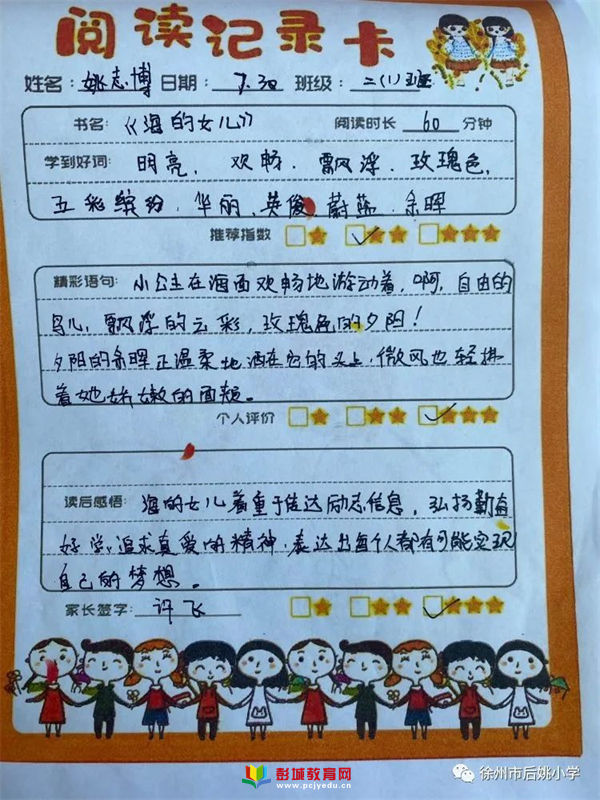 阅读记录卡
姓名：姚志博 日期：7.30 班级：二(1)班
书名：《海的女儿》 阅读时长 60 分钟
学到好词：明亮、欢畅、飘浮、玫瑰色、
五彩缤纷、华丽、英俊、蔚蓝、余晖
推荐指数
精彩语句：小公主在海面欢畅地游动着，啊，自由的
鸟儿，飘浮的云彩，玫瑰色的夕阳！
夕阳的余晖正温柔地洒在她的头上，微风也轻拂
着她娇嫩的面颊。
个人评价
读后感悟：海的女儿着重于传达励志信息，弘扬勤奋
好学、追求真爱的精神，表达出每个人都有可能实现
自己的梦想。
家长签字：许飞
彭城教育网
www.pcjyedu.cn
徐州市后姚小学